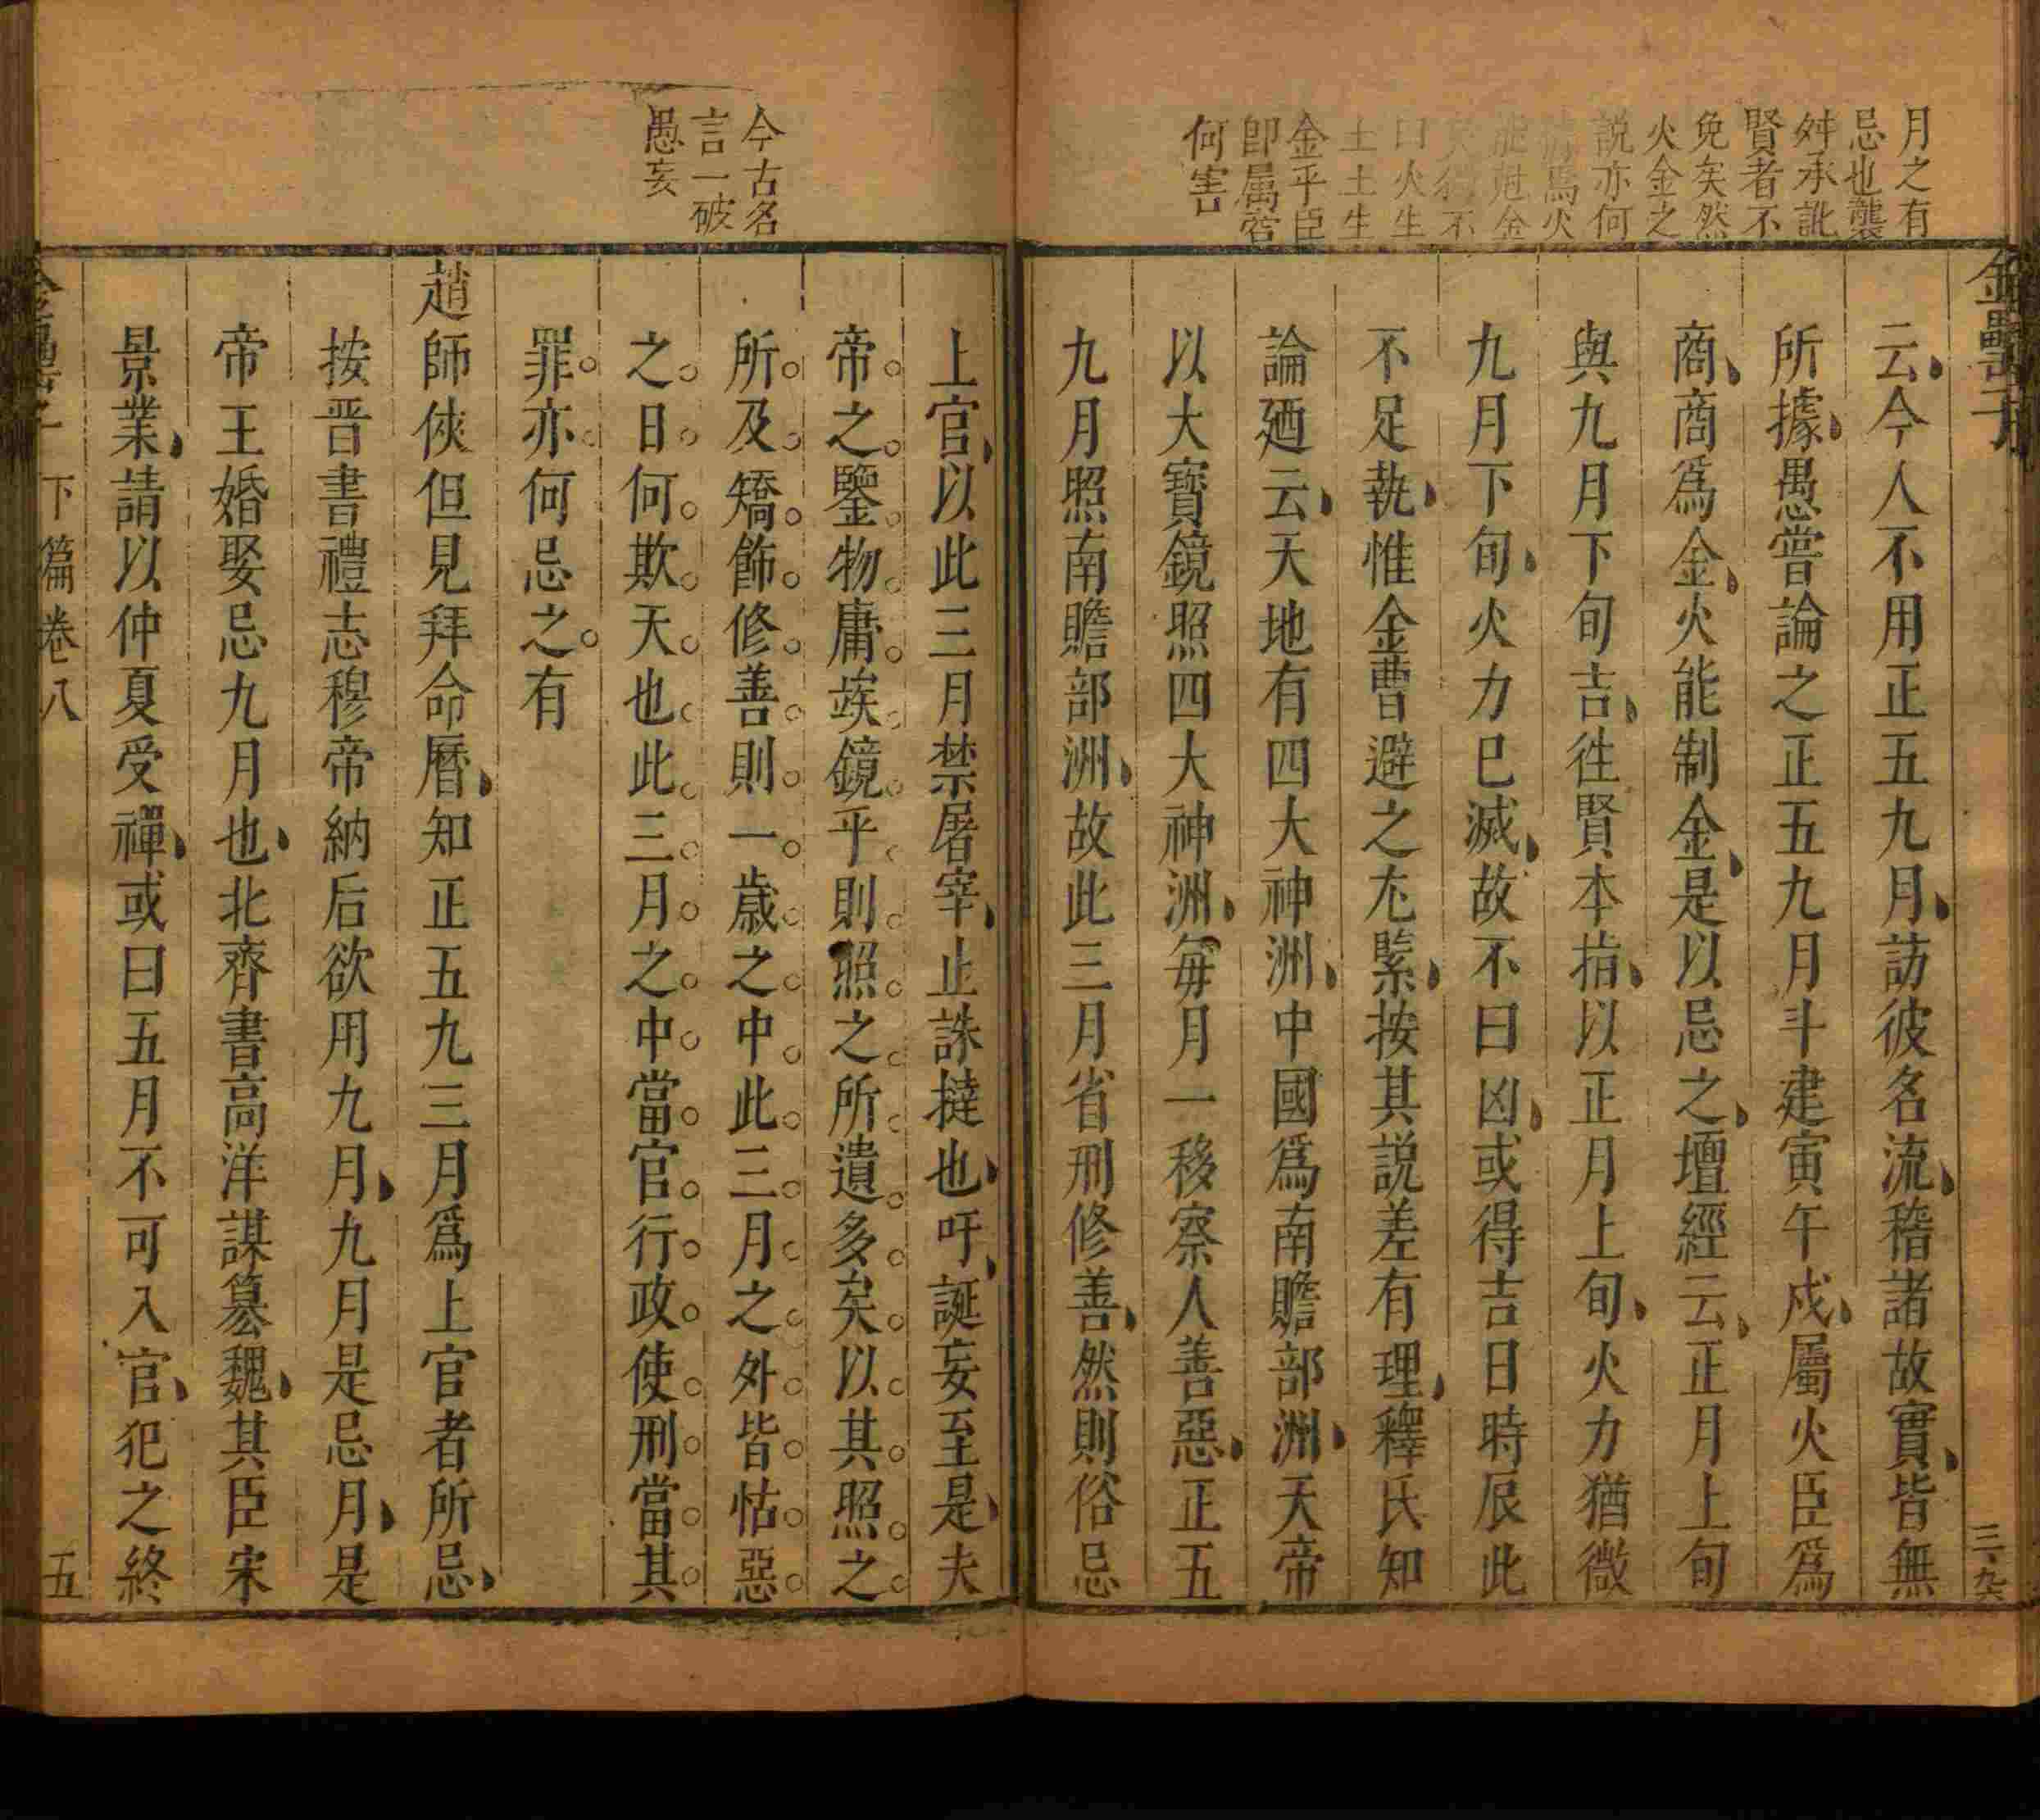 月之有
忌也襲
舛承訛
賢者不
免矣然
火金之
說亦何
爲火
尅金
不
曰火生
土土生
金乎臣
即属啇
何害
金罍子
云今人不用正五九月訪彼名流稽諸故實皆無
所據愚嘗論之正五九月斗建寅午戌屬火臣爲
商商爲金火能制金是以忌之壇經云正月上旬
與九月下旬吉徃賢本指以正月上旬火力猶微
九月下旬火力巳滅故不曰凶或得吉日時辰此
不足執惟金曹避之尢緊按其說差有理釋氏知
論廼云天地有四大神洲中國爲南贍部洲天帝
以大寶鏡照四大神洲每月一移察人善惡正五
九月照南贍部洲故此三月省刑修善然則俗忌
今古名
言一破
愚妄
上官以此三月禁屠宰止誅撻也吁誕妄至是夫
帝之鑒物庸竢鏡乎則照之所遺多矣以其照之
所及矯飾修善則一歲之中此三月之外皆怙惡
之日何欺天也此三月之中當官行政使刑當其
罪亦何忌之有
趙師俠但見拜命曆知正五九三月爲上官者所忌
按晋書禮志穆帝納后欲用九月九月是忌月是
帝王婚娶忌九月也北齊書高洋謀篡魏其臣宋
景業請以仲夏受禪或曰五月不可入官犯之終
下篇卷八
五